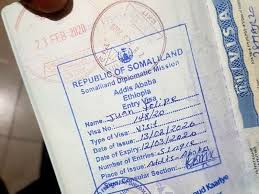 23 FEB 2020
REPUBLIC OF SOMALILAND
Somaliland Diplomatic Mission
Addis Ababa
Ethiopia
Entry Visa
Name: Juan Felipe
Visa No: 148/20
Type of Visa: Visit
Date of Issue: 13/02/2020
Date of Expiry: 12/03/2020
Number of Entries: Single
Place of Issue: Addis Ababa
Consular Section:
VISA